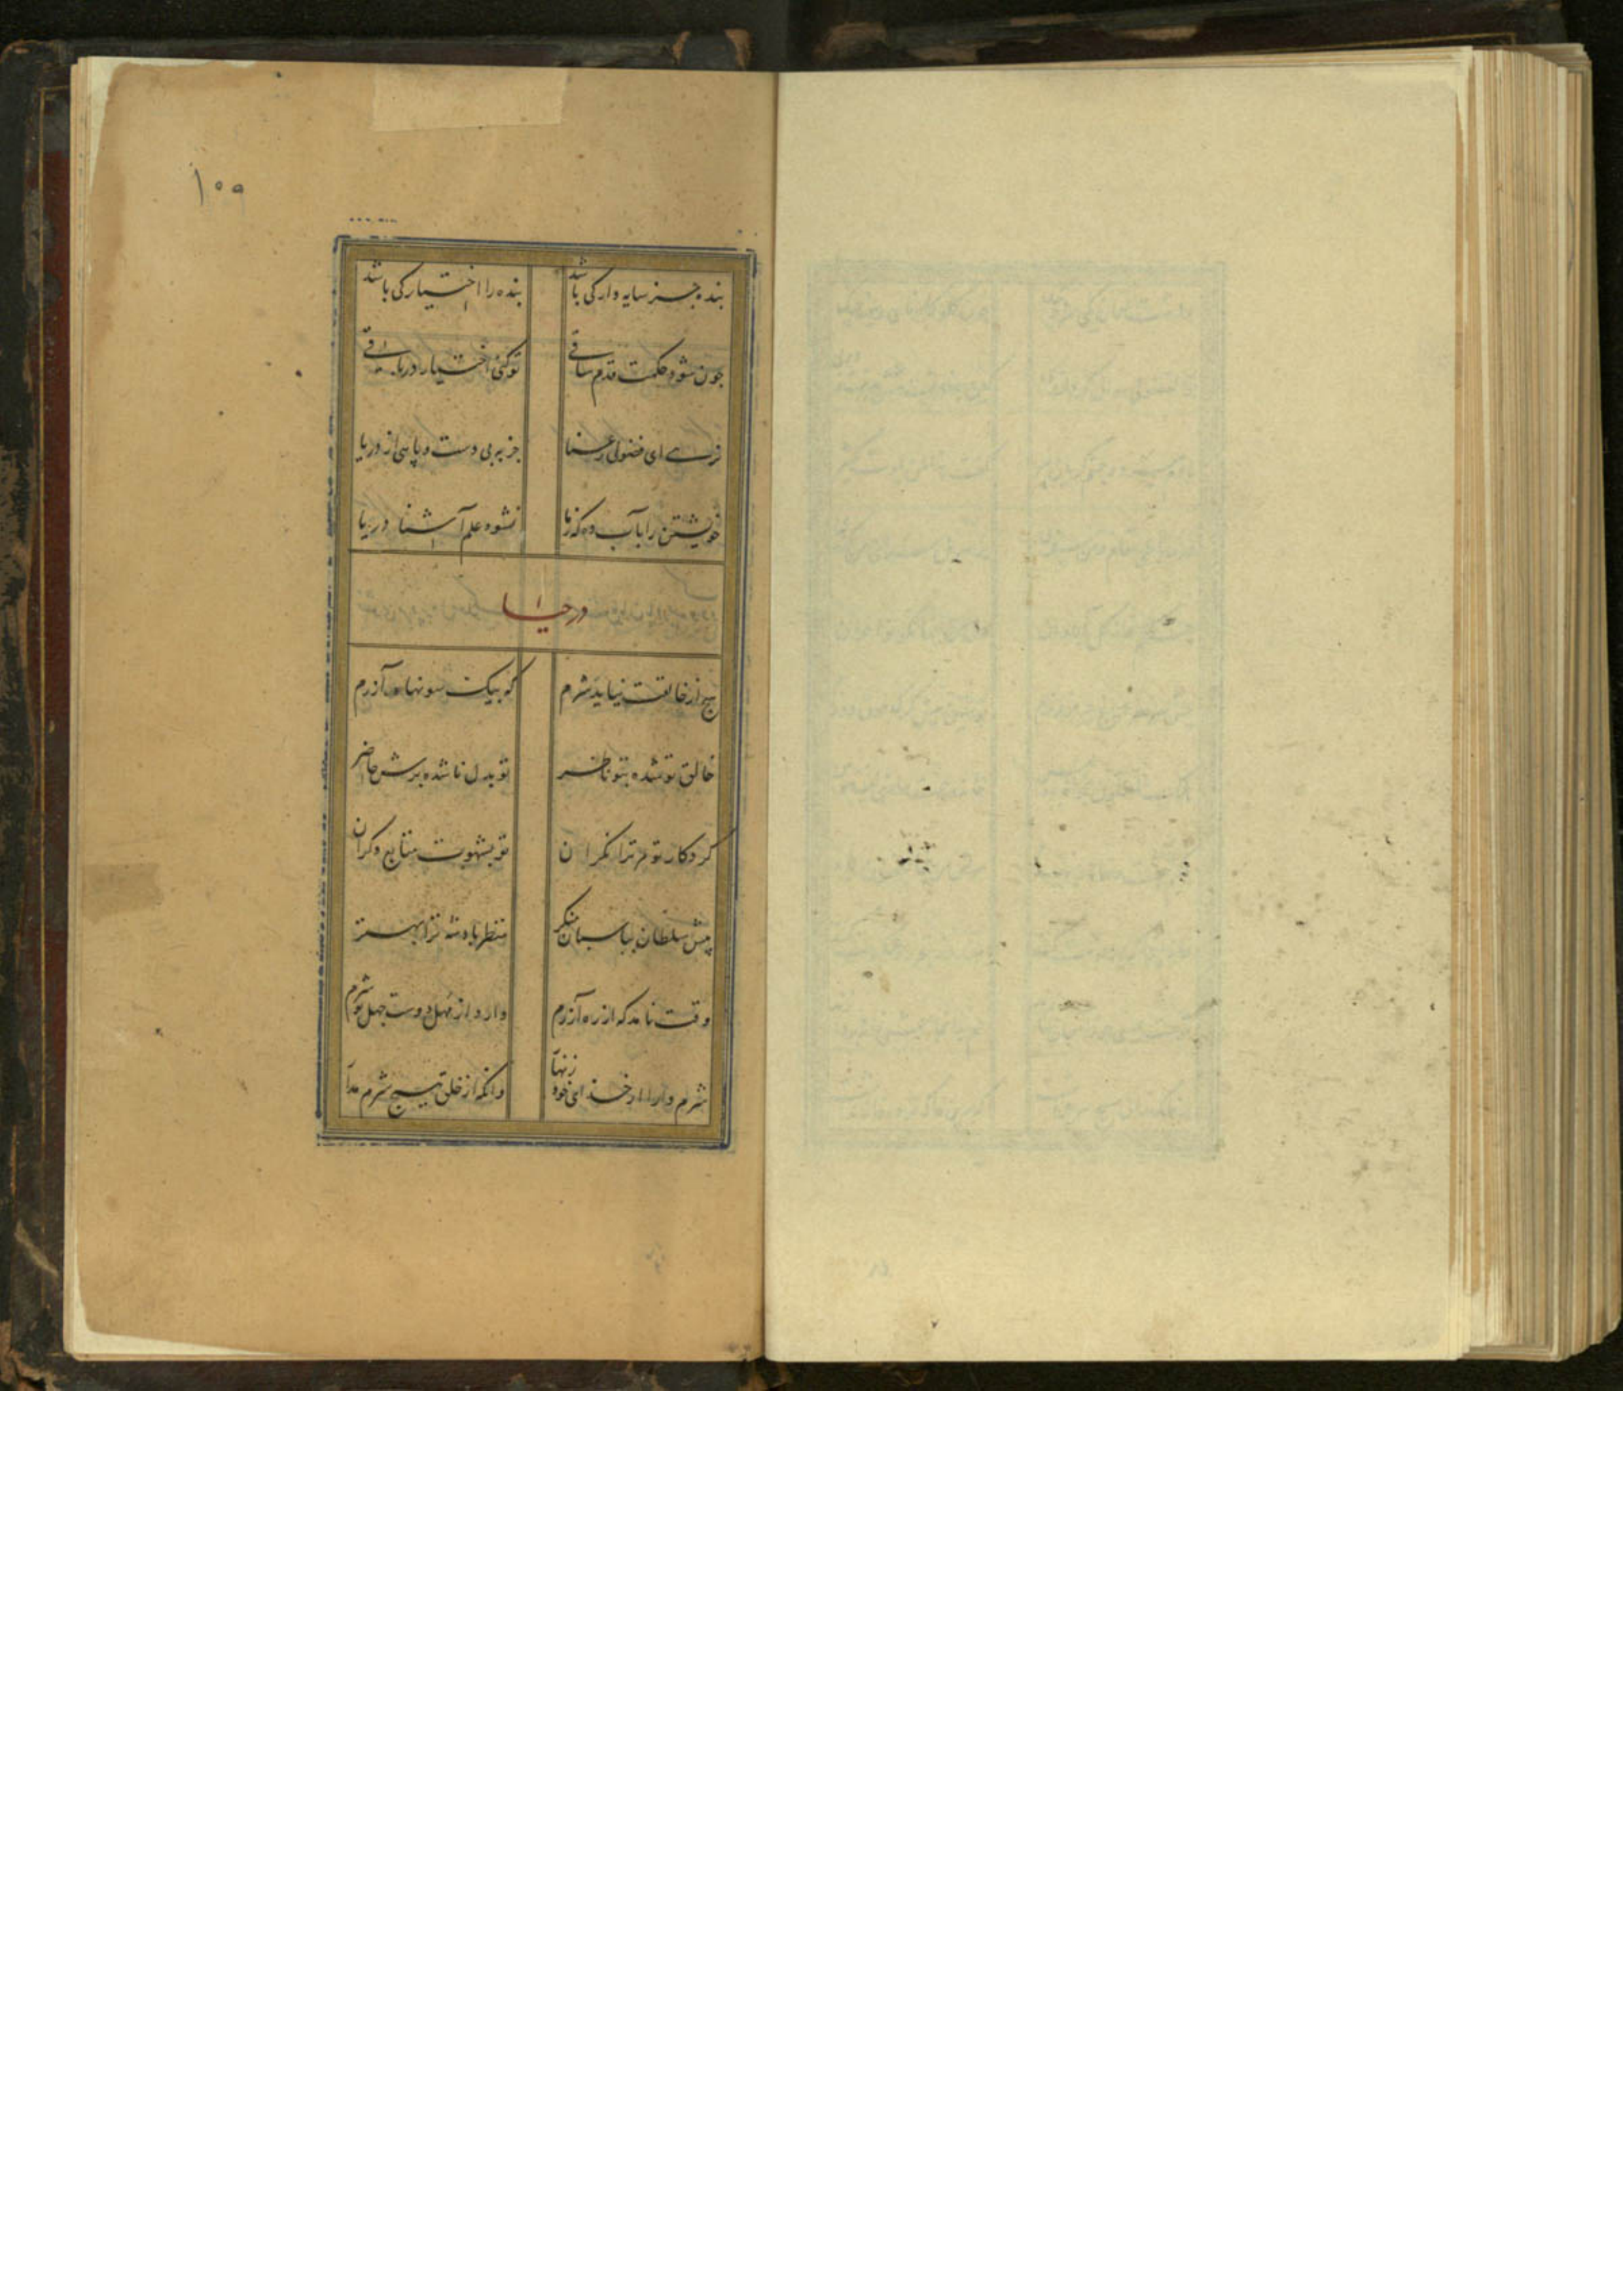 ۱۰۹
بنده جز سایه وار کی باشد بنده را اختیار کی باشد
چون شود حکمت قدم ساقی تو کنی اختیار در باقی
ترسی ای فضولی رعنا جز به بی دست و پایی از دریا
خویشتن را بآب ده که ز ما نشوه علم آشنا دریا
در حیا
هیچ از خالقت نیاید شرم که بیک سو نهاده آزرم
خالق تو شده بتو ناظر تو بدل نا شده برش حاضر
کردکار تو مر ترا نکران تو بشهوت متابع دکران
پیش سلطان بپاسبان منکر منظر باده شه ترا بهتر
وقت نامد که از ره آزرم دارد از مهل دوست جهل تو شرم
شرم دار از خدای خود زنهار وانکه از خلق هیچ شرم مدار